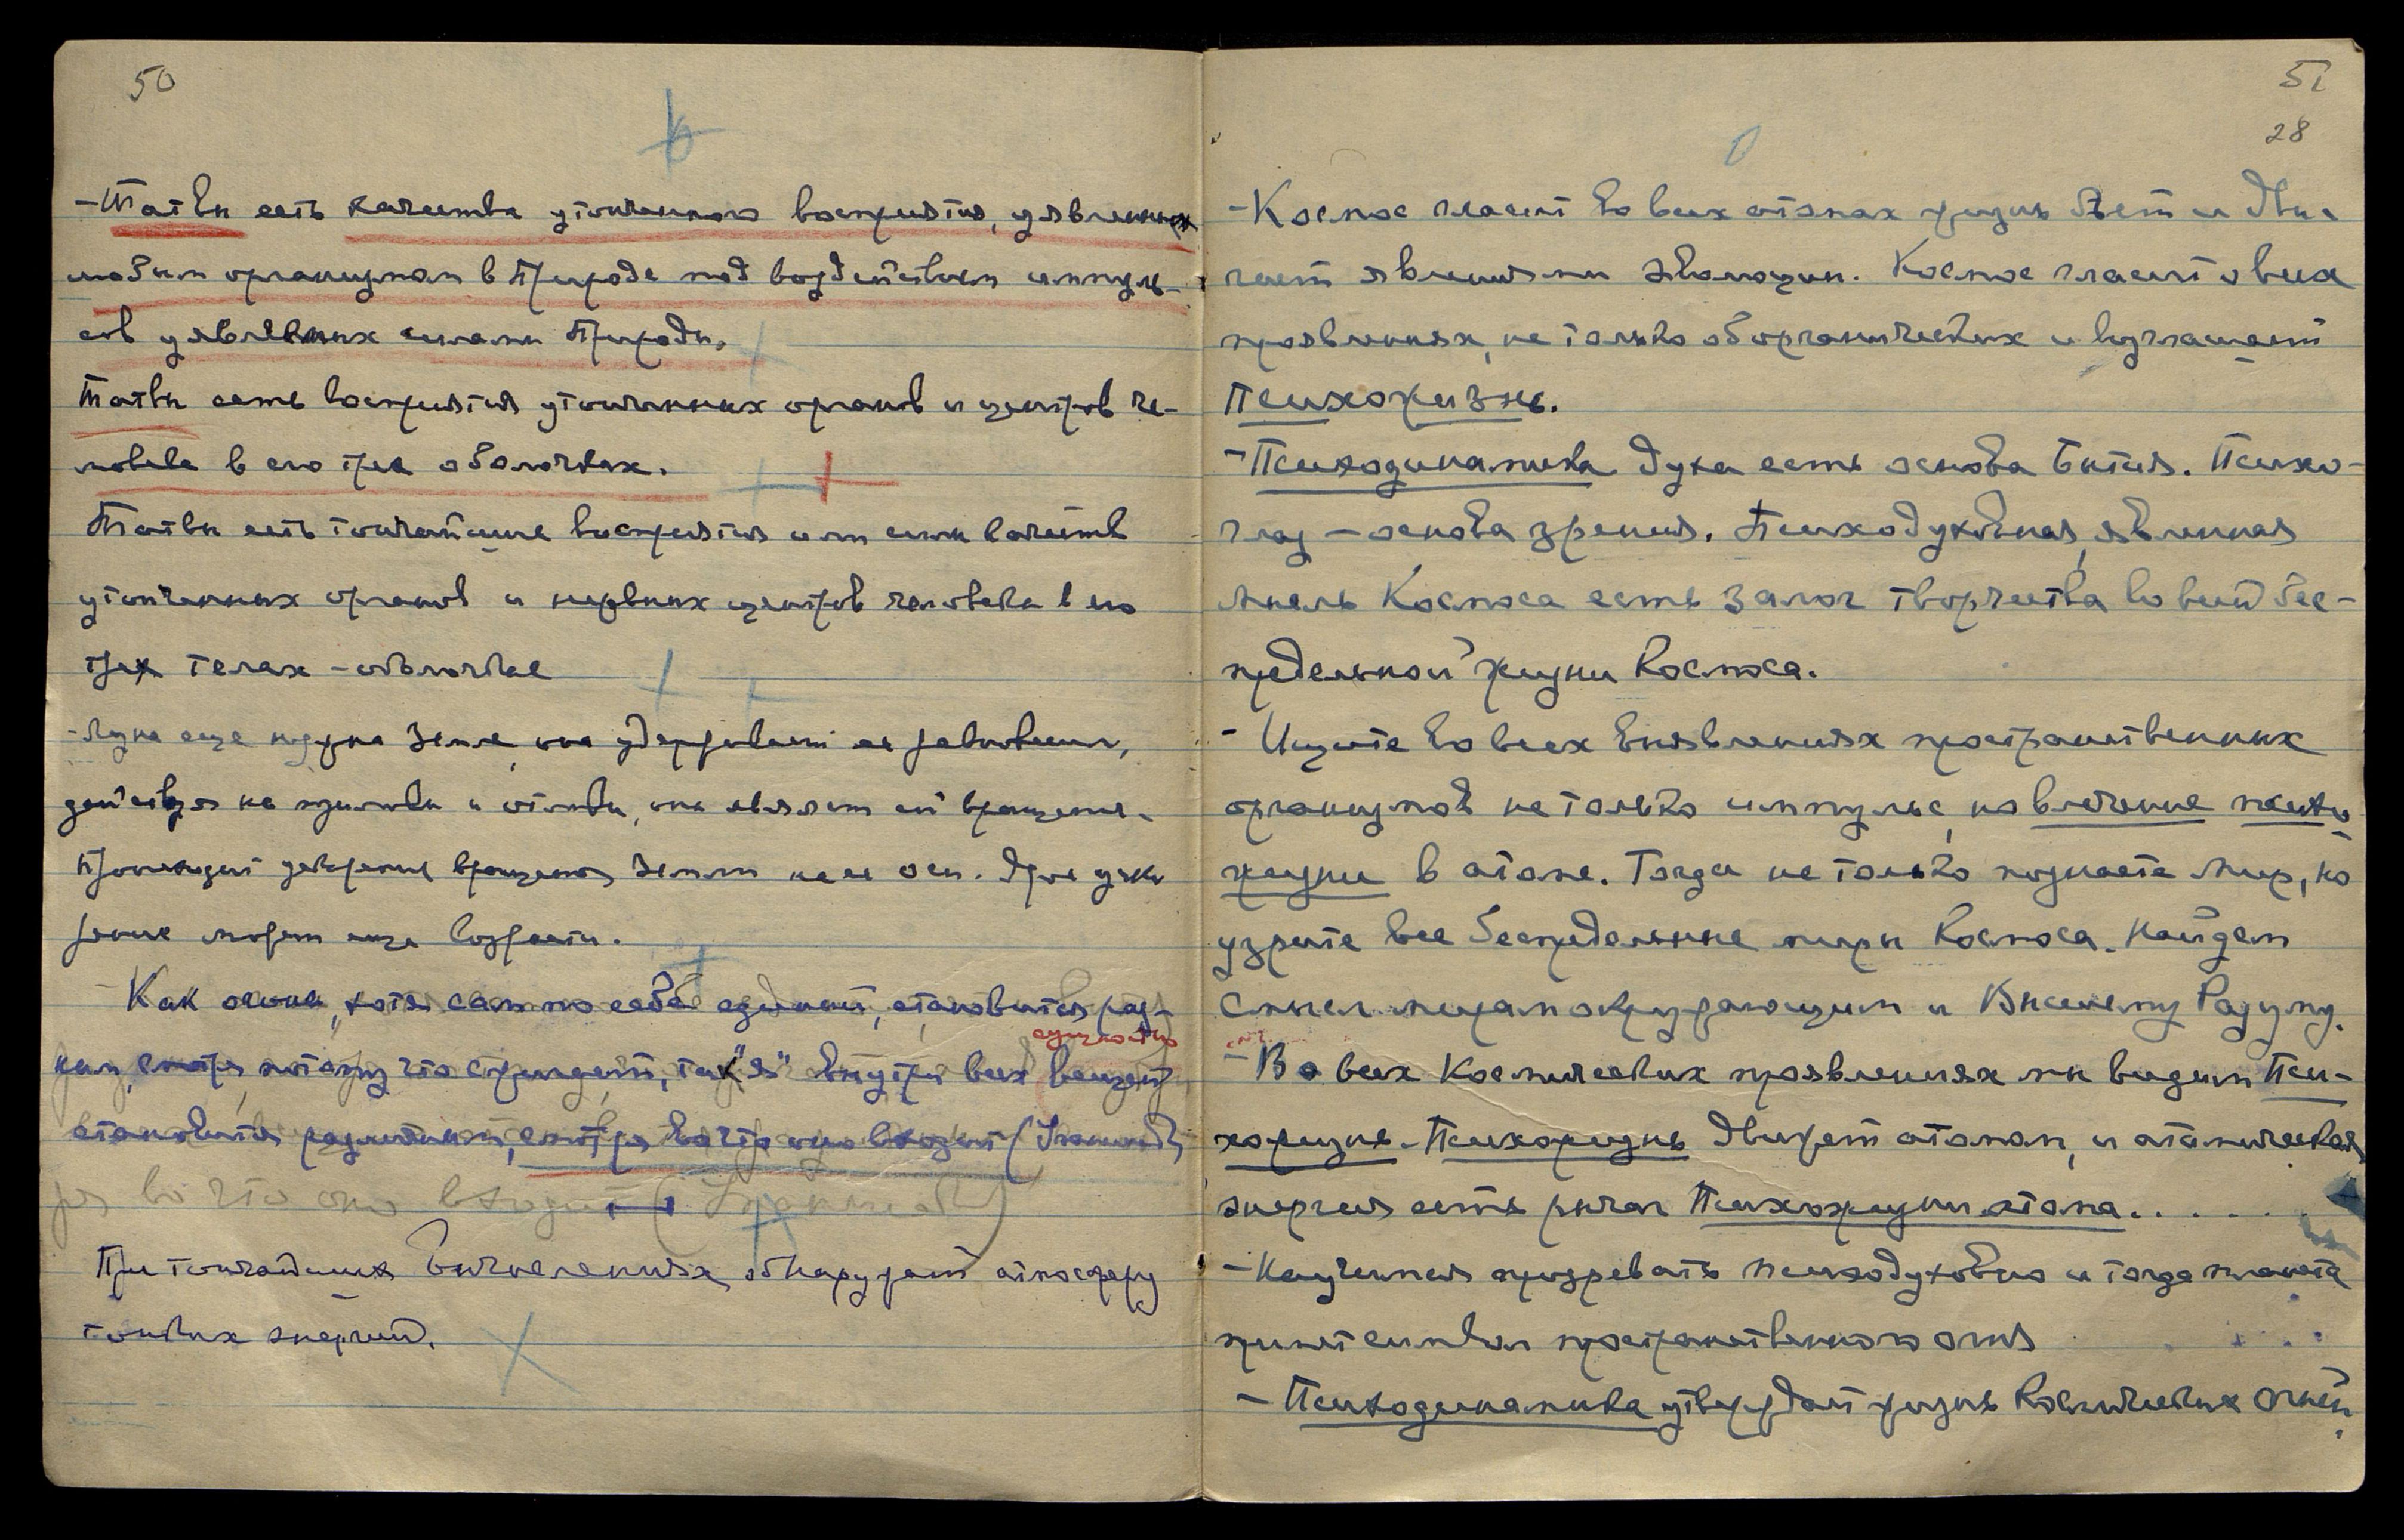 50
- Татвы есть качества утонченного восприятия, уявленных
любым организмам в Природе под воздействием импуль-
сов уявленных силами Природы.
Татвы есть восприятия утонченных органов и центров че-
ловека в его трех оболочках.
Татвы есть тончайшие восприятия или силы качеств
утонченных органов и нервных центров человека в его
трех телах - оболочках
- Луна еще нужна Земле, она удерживает ее равновесие,
действуя на приливы и отливы, она являет ей вращение.
Происходит ускорение вращения Земли на ее оси. Это уско
рение может еще возрасти.
Как огонь, хотя сам по себе единый, становится раз-
ным, смотря потому что сжигает, так "я" внутри всех вещей
сущностно
становится различным, смотря во что оно входит (Упанишады)
ря во что оно входит (Упанишады)
При тончайших вычислениях обнаружат атмосферу
тонких энергий.
51
28
- Космос гласит во всех атомах жизнь бьет и дви-
жет явлениями эволюции. Космос гласит о всех
проявлениях, не только об органических и возглашает
Психожизнь.
- Психодинамика духа есть основа Бытия. Психо-
глаз - основа зрения. Психодуховная, явленная
мысль Космоса есть залог творчества во всей бес-
предельной жизни Космоса.
- Ищите во всех выявлениях пространственных
организмов не только импульс, но влечение психо-
жизни в атоме. Тогда не только познаете мир, но
узрите все беспредельные миры Космоса. Найдем
смысл мирам окружающим и Высшему Разуму.
- Во всех Космических проявлениях мы видим Пси-
хожизнь. Психожизнь движет атомом, и атомическая
энергия есть рычаг Психожизни атома. . . . . .
- Научимся прозревать психодуховно и тогда планета
примет символ пространственного огня
- Психодинамика утверждает жизнь Космических Огней.